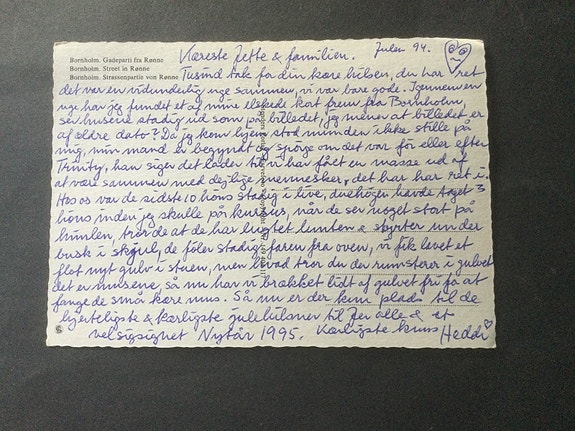 Bornholm. Gadeparti fra Rønne
Bornholm. Street in Rønne
Bornholm. Strassenpartie von Rønne
Julen 94.
Kæreste Jette & familien.
Tusind tak for din kære hilsen, du har ret
det var en vidunderlig uge sammen, vi var bare gode. Igennem en
uge har jeg fundet et af mine elskede kort frem fra Bornholm,
ser husene stadig ud som på billedet, jeg mener at billedet er
af ældre dato? Da jeg kom hjem stod munden ikke stille på
mig, min mand er begyndt at spørge om det var før eller efter
Trinity, han siger det lader til vi har fået en masse ud af
at være sammen med dejlige mennesker, det har han ret i.
Hos os var de sidste 10 høns stadig i live, duehøgen havde taget 3
høns inden jeg skulle på kursus, når de ser noget stort på
himlen, tror de at de har lugtet lunten & spurter under
busk i skjul, de føler stadig faren fra oven, vi fik lavet et
flot nyt gulv i stuen, men hvad tror du der rumsterer i gulvet
det er musene, så nu har vi brækket lidt af gulvet fri for at
fange de små kære mus. Så nu er der kun plads til de
hjerteligste & kærligste julehilsner til jer alle & et
velsigsignet Nytår 1995. Kærligste knus Heddi